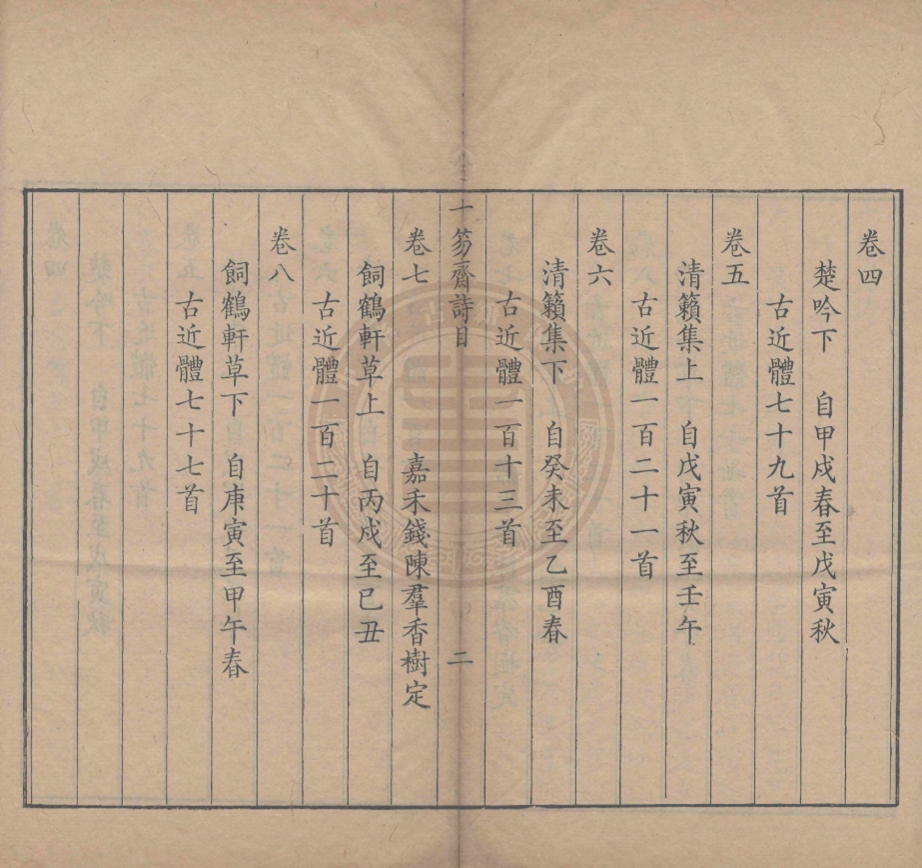 卷四
楚吟下　自甲戍春至戊寅秋
古近體七十九首
卷五
清籟集上　自戊寅秋至壬午
古近體一百二十一首
卷六
清籟集下　自癸未至乙酉春
古近體一百十三首
一笏齋詩目　二
卷七　嘉禾錢陳羣香樹定
飼鶴軒草上　自丙戍至已丑
古近體一百二十首
卷八
飼鶴軒草下　自庚寅至甲午春
古近體七十七首